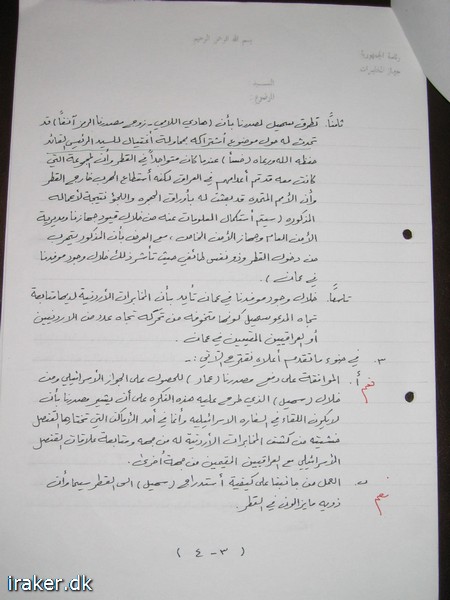 بسم الله الرحمن الرحيم
رئاسة الجمهورية
جهاز المخابرات
الســـيد
الموضوع
ثامناً. تطرق سهيل لمصدرنا بأن (هادي اللامي - زوج مصدرنا الرمز آنفاً) قد
تحدث له حول موضوع أشتراكه بمحاولة أغتيال للسيد الرئيس القائد
حفظه الله ورعاه (خسأ) عندما كان متواجداً في القطر وأن المجموعة التي
كانت معه قد تم أعدامهم في العراق لكنه أستطاع الهرب خارج القطر
وأن الأمم المتحدة قد بعثت له بأوراق الهجرة واللجوء نتيجة لأعماله
المذكورة (سيتم أستكمال المعلومات عنه من خلال قيود جهازنا ومديرية
الأمن العام وجهاز الأمن الخاص، مع العرض بأن المذكور متهرب
من دخول القطر وذو نفس طائفي حيث تأشر ذلك خلال وجود موفدنا
في عمان)
تاسعاً. خلال وجود موفدنا في عمان تأيد بأن المخابرات الأردنية لديها متابعة
تجاه المدعو سهيل كونها متخوفة من تحركه تجاه عدد من الاردنيين
أو العراقيين المقيمين في عمان.
٣. في ضوء ما تقدم أعلاه نقترح الآتي :-
نعم أ. الموافقة على دفع مصدرنا (عمار) للحصول على الجواز الأسرائيلي ومن
خلال (سهيل) الذي طرح عليه هذه الفكرة على أن يشير مصدرنا بأن
لا يكون اللقاء في السفارة الاسرائيلية وأنما في أحد الأماكن التي تختارها القنصل
خشيته من كشف المخابرات الأردنية له من جهة ومتابعة علاقات القنصل
الأسرائيلي مع العراقيين المقيمين من جهة أخرى.
نعم ب. العمل من جانبنا على كيفية أستدراج (سهيل) الى القطر سيما وأن
ذويه ما يزالون في القطر.
( ٣ - ٤ )
iraker.dk
iraker.dk